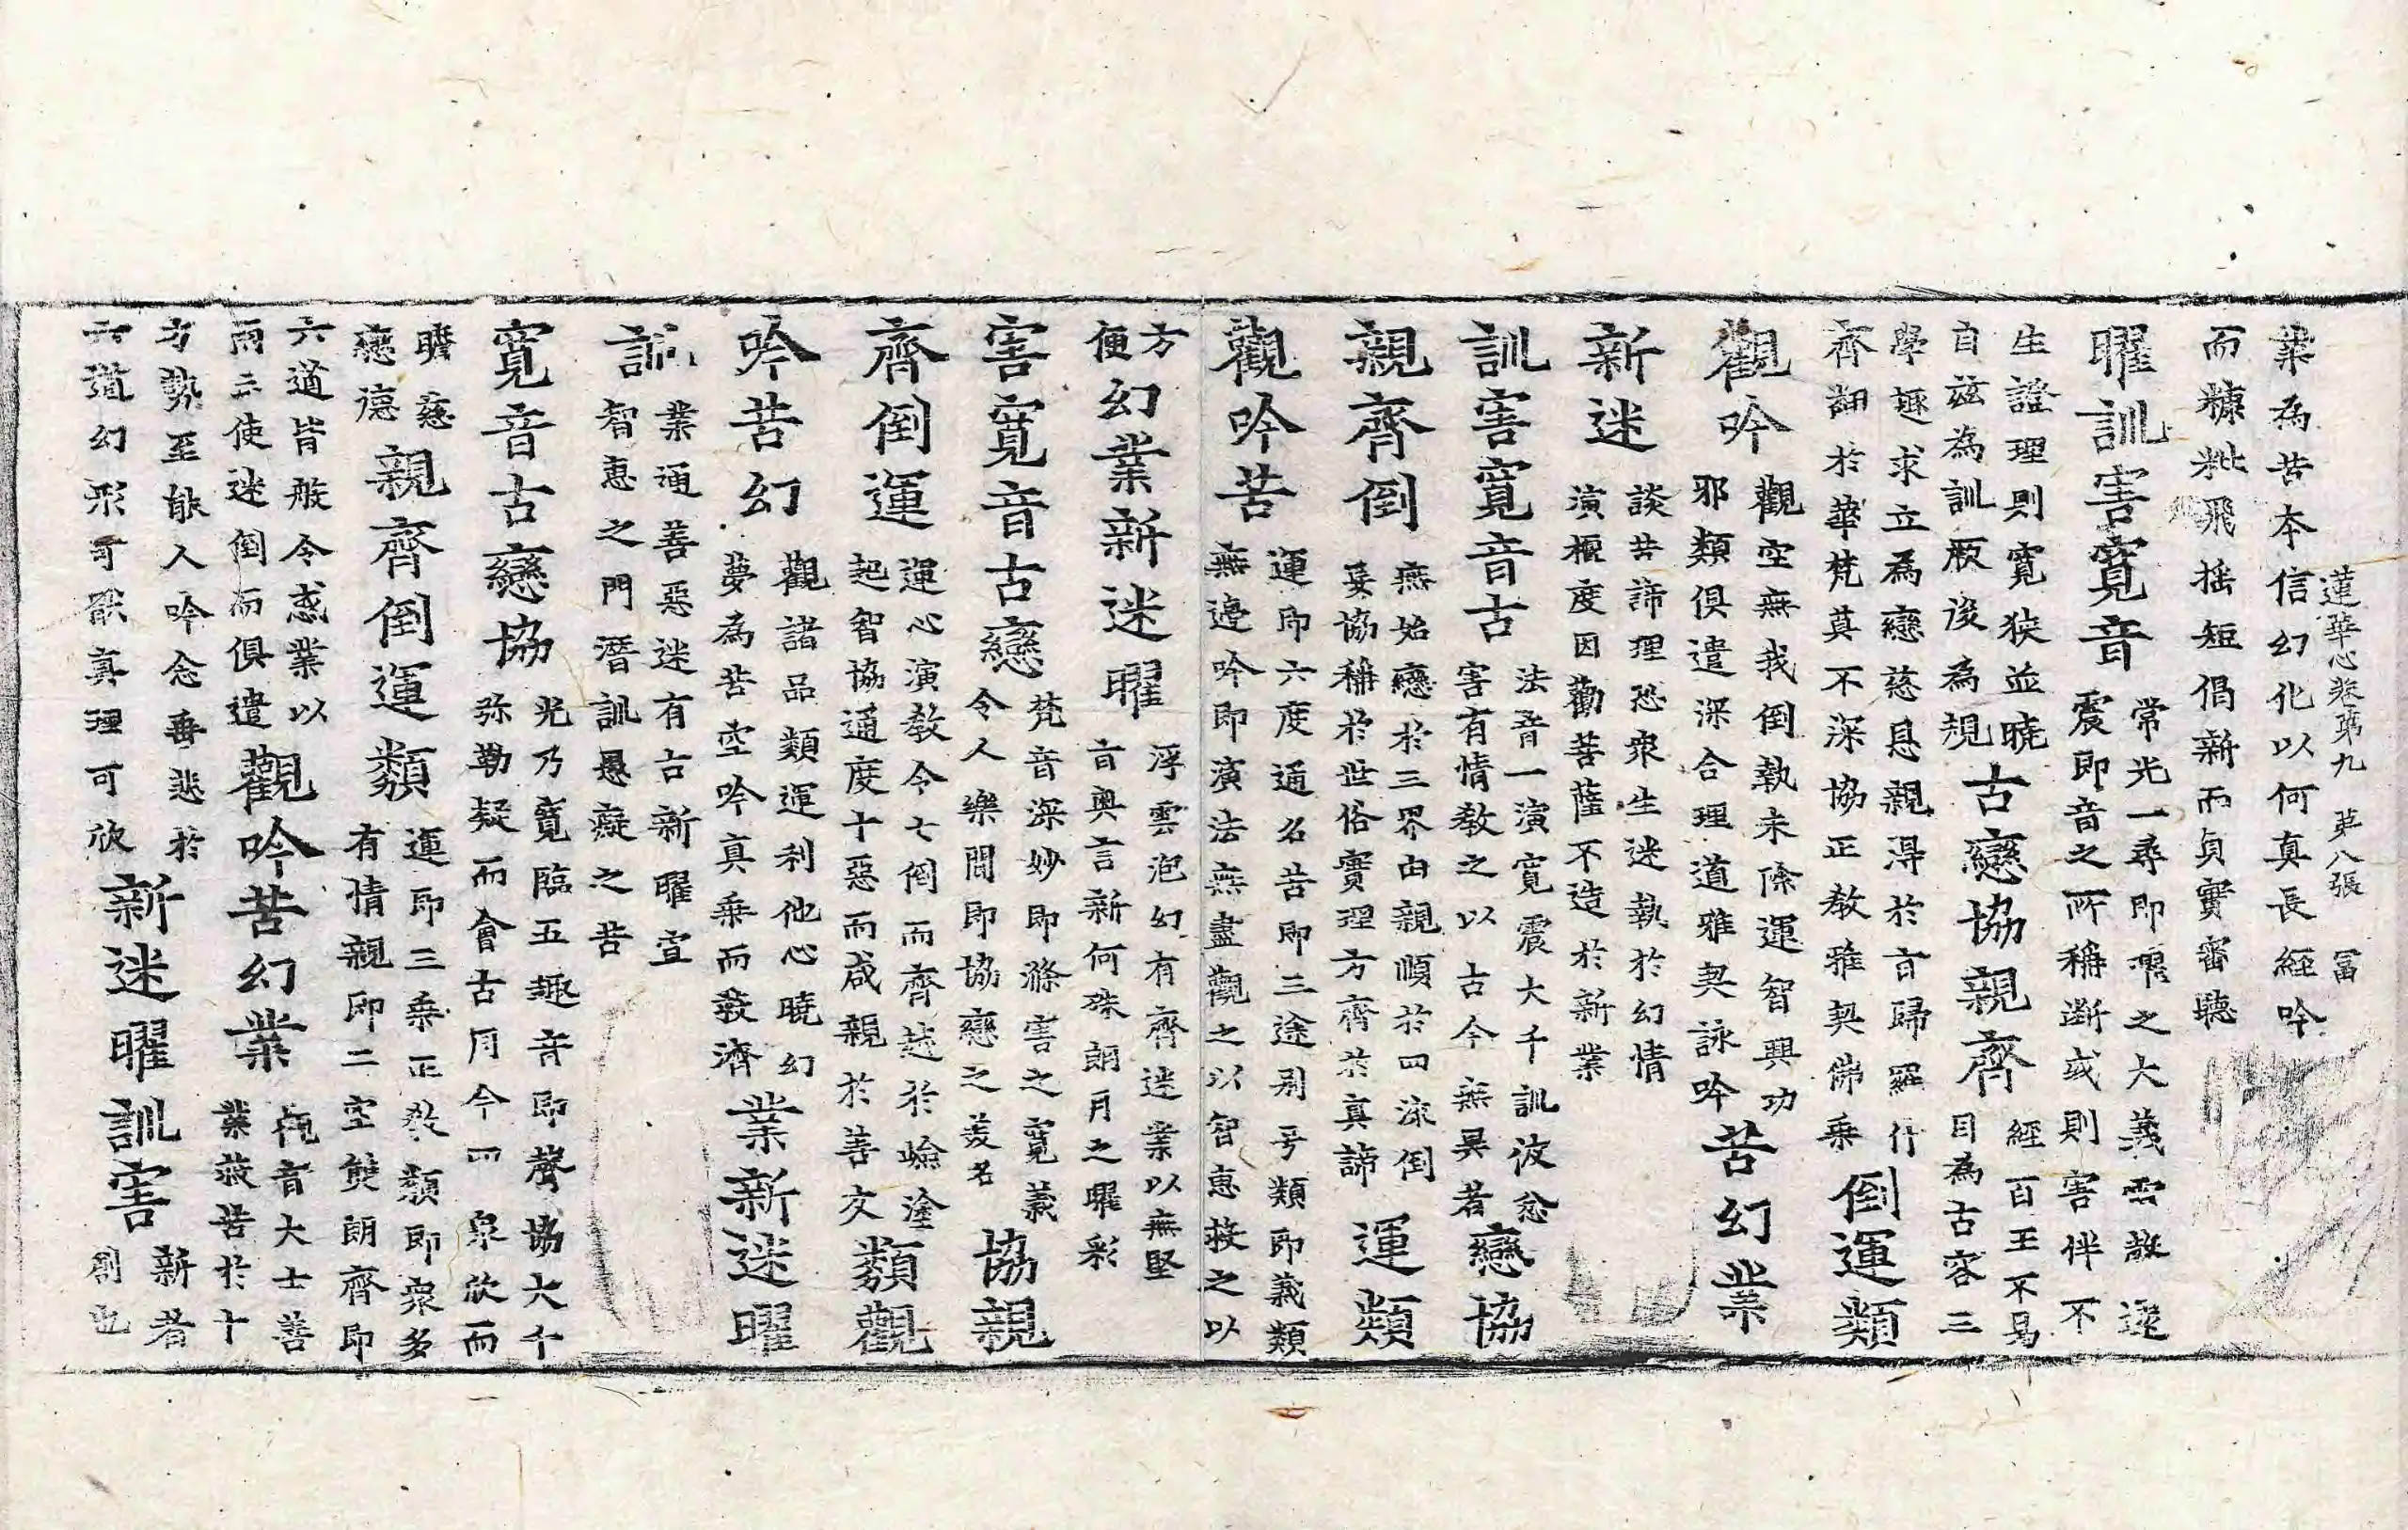 蓮華心卷第九 第八張 冨
業為苦本信幻化以何真長經吟
而糠粃飛搖短偈新而貞實審聽
曜訓害寬音
常光一尋即曜之大義雲散遝
震即音之所稱斷或則害伴不
生證理則寬狹並曉
自茲為訓厥後為規
古戀協親齊
經百王不易
目為古容三
學趣求立為戀慈息親得於言歸羅什
齊翻於華梵莫不深協正教雅契佛乘
倒運類
觀吟
觀空無我倒執未除運智興功
邪類俱遣深合理道雅契詠吟
苦幻業
新迷
談苦諦理恐眾生迷執於幻情
演概度因勸菩薩不造於新業
訓害寬音古
法音一演寬震大千訓波忿
害有情教之以古今無異者
戀協
親齊倒
無始戀於三界由親順於四流倒
妄協稱於世俗實理方齊於真諦
運類
觀吟苦
運即六度通名苦即三途別号類即義類
無邊吟即演法無盡觀之以智惠救之以
方
便
幻業新迷曜
浮雲泡幻有齊迷業以無堅
言奧言新何殊朗月之曜彩
害寬音古戀
梵音深妙即滌害之寬義
令人樂聞即協戀之美名
協親
齊倒運
運心演教令七倒而齊越於嶮塗
起智協通度十惡而咸親於善友
類觀
吟苦幻
觀諸品類運利他心曉幻
夢為苦空吟真乘而救濟
業新迷曜
訓
業通善惡迷有古新曜宣
智惠之門潛訓愚癡之苦
寬音古戀協
光乃寬臨五趣音即聲協大千
弥勒疑而會古同今四眾欣而
齊慈
戀德
親齊倒運類
運即三乘正教類即眾多
有情親即二空雙朗齊即
六道皆般令惑業以
兩亡使迷倒而俱遣
觀吟苦幻業
觀音大士善
業救苦於十
方勢至能人吟念垂悲於
六道幻形可厭真理可欣
新迷曜訓害
新者
創也